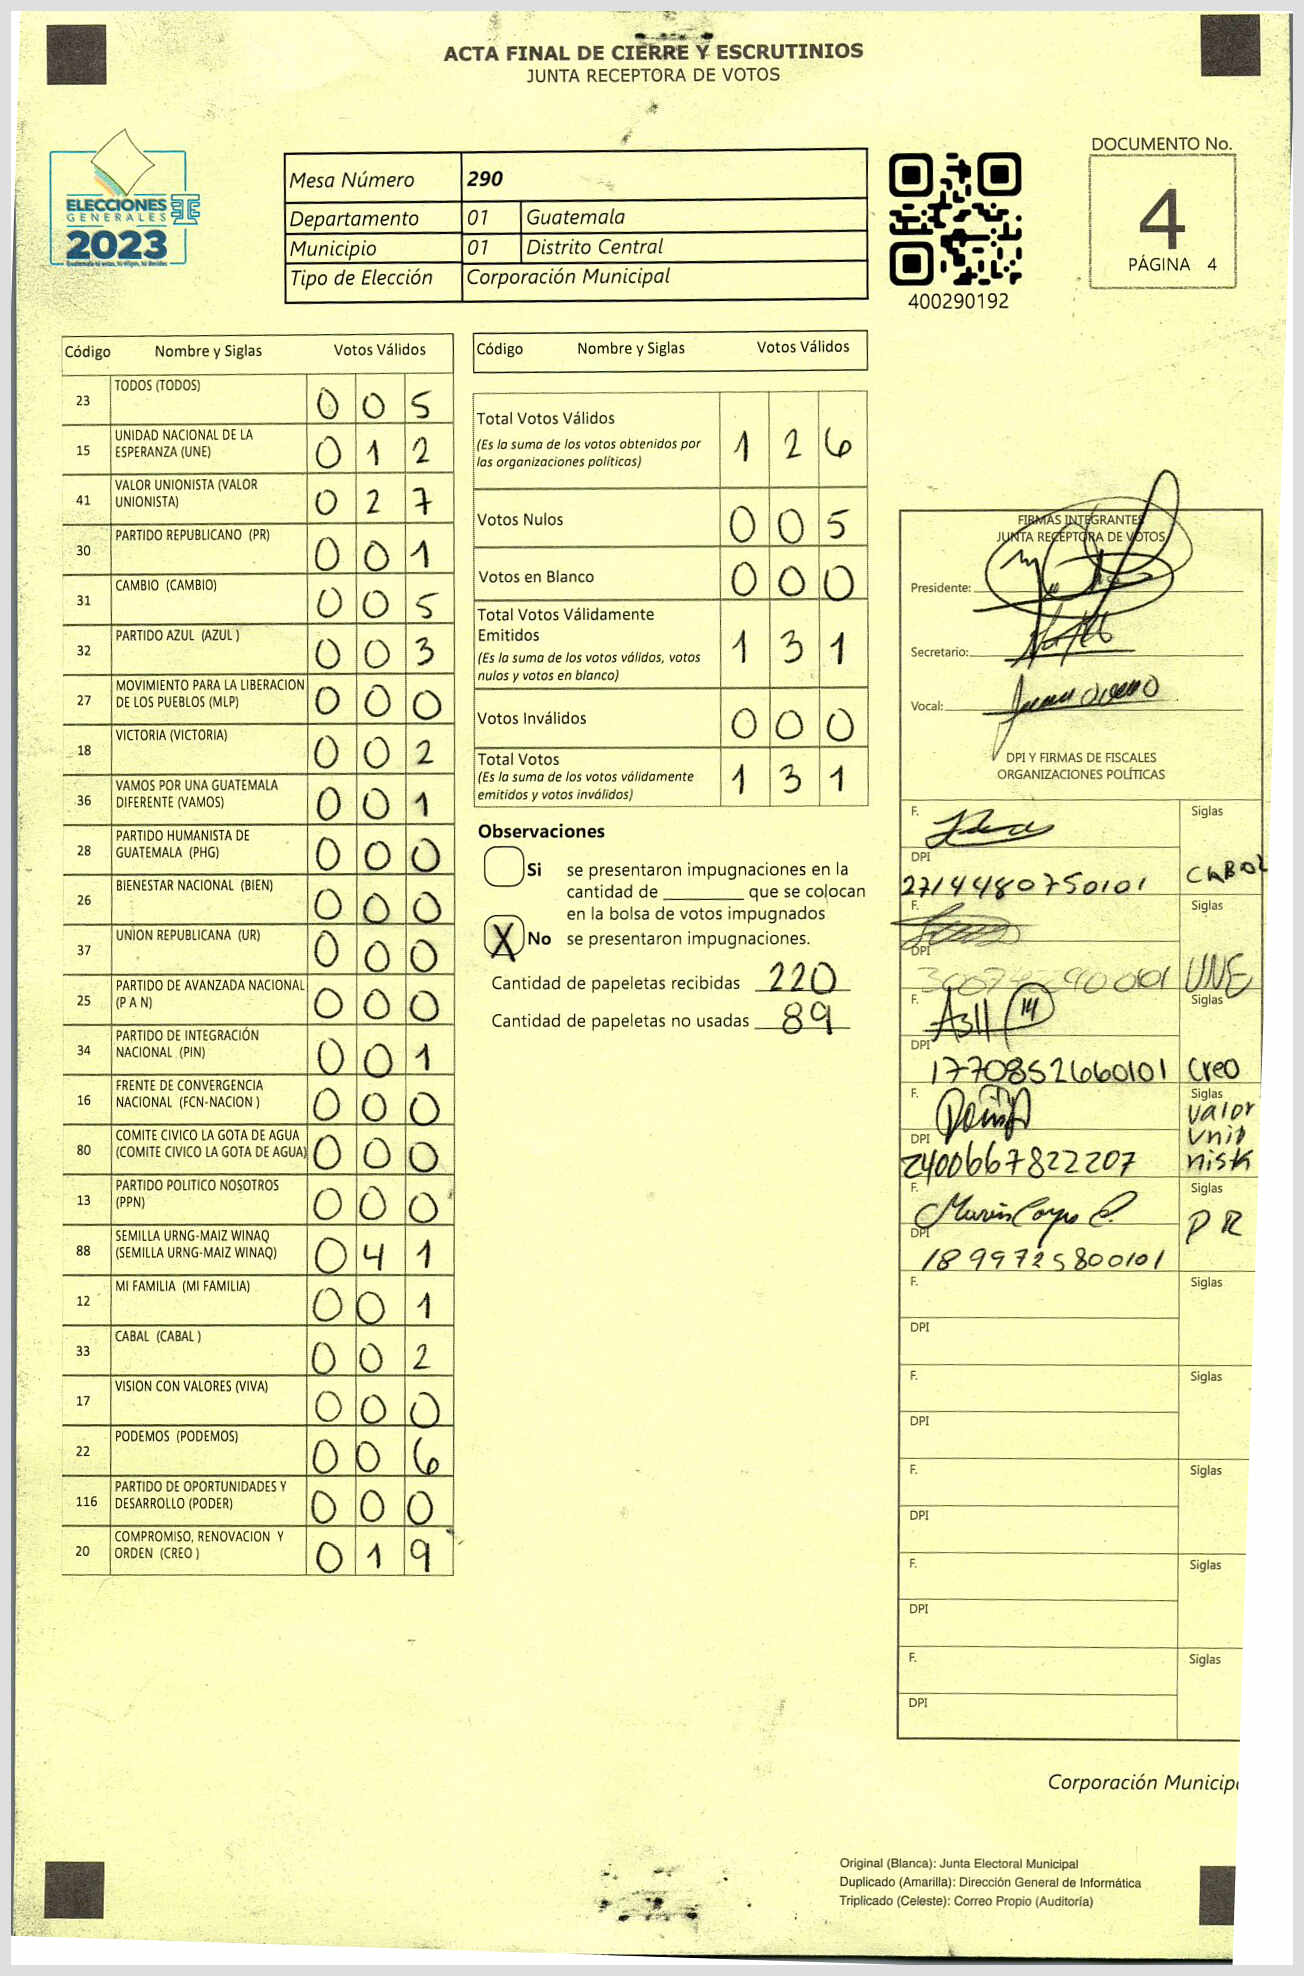 ACTA FINAL DE CIERRE Y ESCRUTINIOS
JUNTA RECEPTORA DE VOTOS
ELECCIONES
GENERALES
2023
Mesa Número 290
Departamento 01 Guatemala
Municipio 01 Distrito Central
Tipo de Elección Corporación Municipal
400290192
DOCUMENTO No.
4
PÁGINA 4
Código Nombre y Siglas Votos Válidos
23 TODOS (TODOS) 0 0 5
15 UNIDAD NACIONAL DE LA
ESPERANZA (UNE) 0 1 2
41 VALOR UNIONISTA (VALOR
UNIONISTA) 0 2 7
30 PARTIDO REPUBLICANO (PR) 0 0 1
31 CAMBIO (CAMBIO) 0 0 5
32 PARTIDO AZUL (AZUL ) 0 0 3
27 MOVIMIENTO PARA LA LIBERACION
DE LOS PUEBLOS (MLP) 0 0 0
18 VICTORIA (VICTORIA) 0 0 2
36 VAMOS POR UNA GUATEMALA
DIFERENTE (VAMOS) 0 0 1
28 PARTIDO HUMANISTA DE
GUATEMALA (PHG) 0 0 0
26 BIENESTAR NACIONAL (BIEN) 0 0 0
37 UNION REPUBLICANA (UR) 0 0 0
25 PARTIDO DE AVANZADA NACIONAL
(P A N) 0 0 0
34 PARTIDO DE INTEGRACIÓN
NACIONAL (PIN) 0 0 1
16 FRENTE DE CONVERGENCIA
NACIONAL (FCN-NACION ) 0 0 0
80 COMITE CIVICO LA GOTA DE AGUA
(COMITE CIVICO LA GOTA DE AGUA) 0 0 0
13 PARTIDO POLITICO NOSOTROS
(PPN) 0 0 0
88 SEMILLA URNG-MAIZ WINAQ
(SEMILLA URNG-MAIZ WINAQ) 0 4 1
12 MI FAMILIA (MI FAMILIA) 0 0 1
33 CABAL (CABAL ) 0 0 2
17 VISION CON VALORES (VIVA) 0 0 0
22 PODEMOS (PODEMOS) 0 0 6
116 PARTIDO DE OPORTUNIDADES Y
DESARROLLO (PODER) 0 0 0
20 COMPROMISO, RENOVACION Y
ORDEN (CREO ) 0 1 9
Código Nombre y Siglas Votos Válidos
Total Votos Válidos 1 2 6
(Es la suma de los votos obtenidos por
las organizaciones políticas)
Votos Nulos 0 0 5
Votos en Blanco 0 0 0
Total Votos Válidamente
Emitidos 1 3 1
(Es la suma de los votos válidos, votos
nulos y votos en blanco)
Votos Inválidos 0 0 0
Total Votos 1 3 1
(Es la suma de los votos válidamente
emitidos y votos inválidos)
Observaciones
Si se presentaron impugnaciones en la
cantidad de ________ que se colocan
en la bolsa de votos impugnados
X No se presentaron impugnaciones.
Cantidad de papeletas recibidas 220
Cantidad de papeletas no usadas 89
FIRMAS INTEGRANTES
JUNTA RECEPTORA DE VOTOS
Presidente:
Secretario:
Vocal:
DPI Y FIRMAS DE FISCALES
ORGANIZACIONES POLÍTICAS
F. Siglas
DPI
2714480750101 CABAL
F. Siglas
DPI
UNE
F. Siglas
DPI
1770852660101 Creo
F. Siglas
valor
DPI unio
2400667822207 nista
F. Siglas
DPI PR
1899725800101
F. Siglas
DPI
F. Siglas
DPI
F. Siglas
DPI
F. Siglas
DPI
F. Siglas
DPI
Corporación Municip
Original (Blanca): Junta Electoral Municipal
Duplicado (Amarilla): Dirección General de Informática
Triplicado (Celeste): Correo Propio (Auditoría)